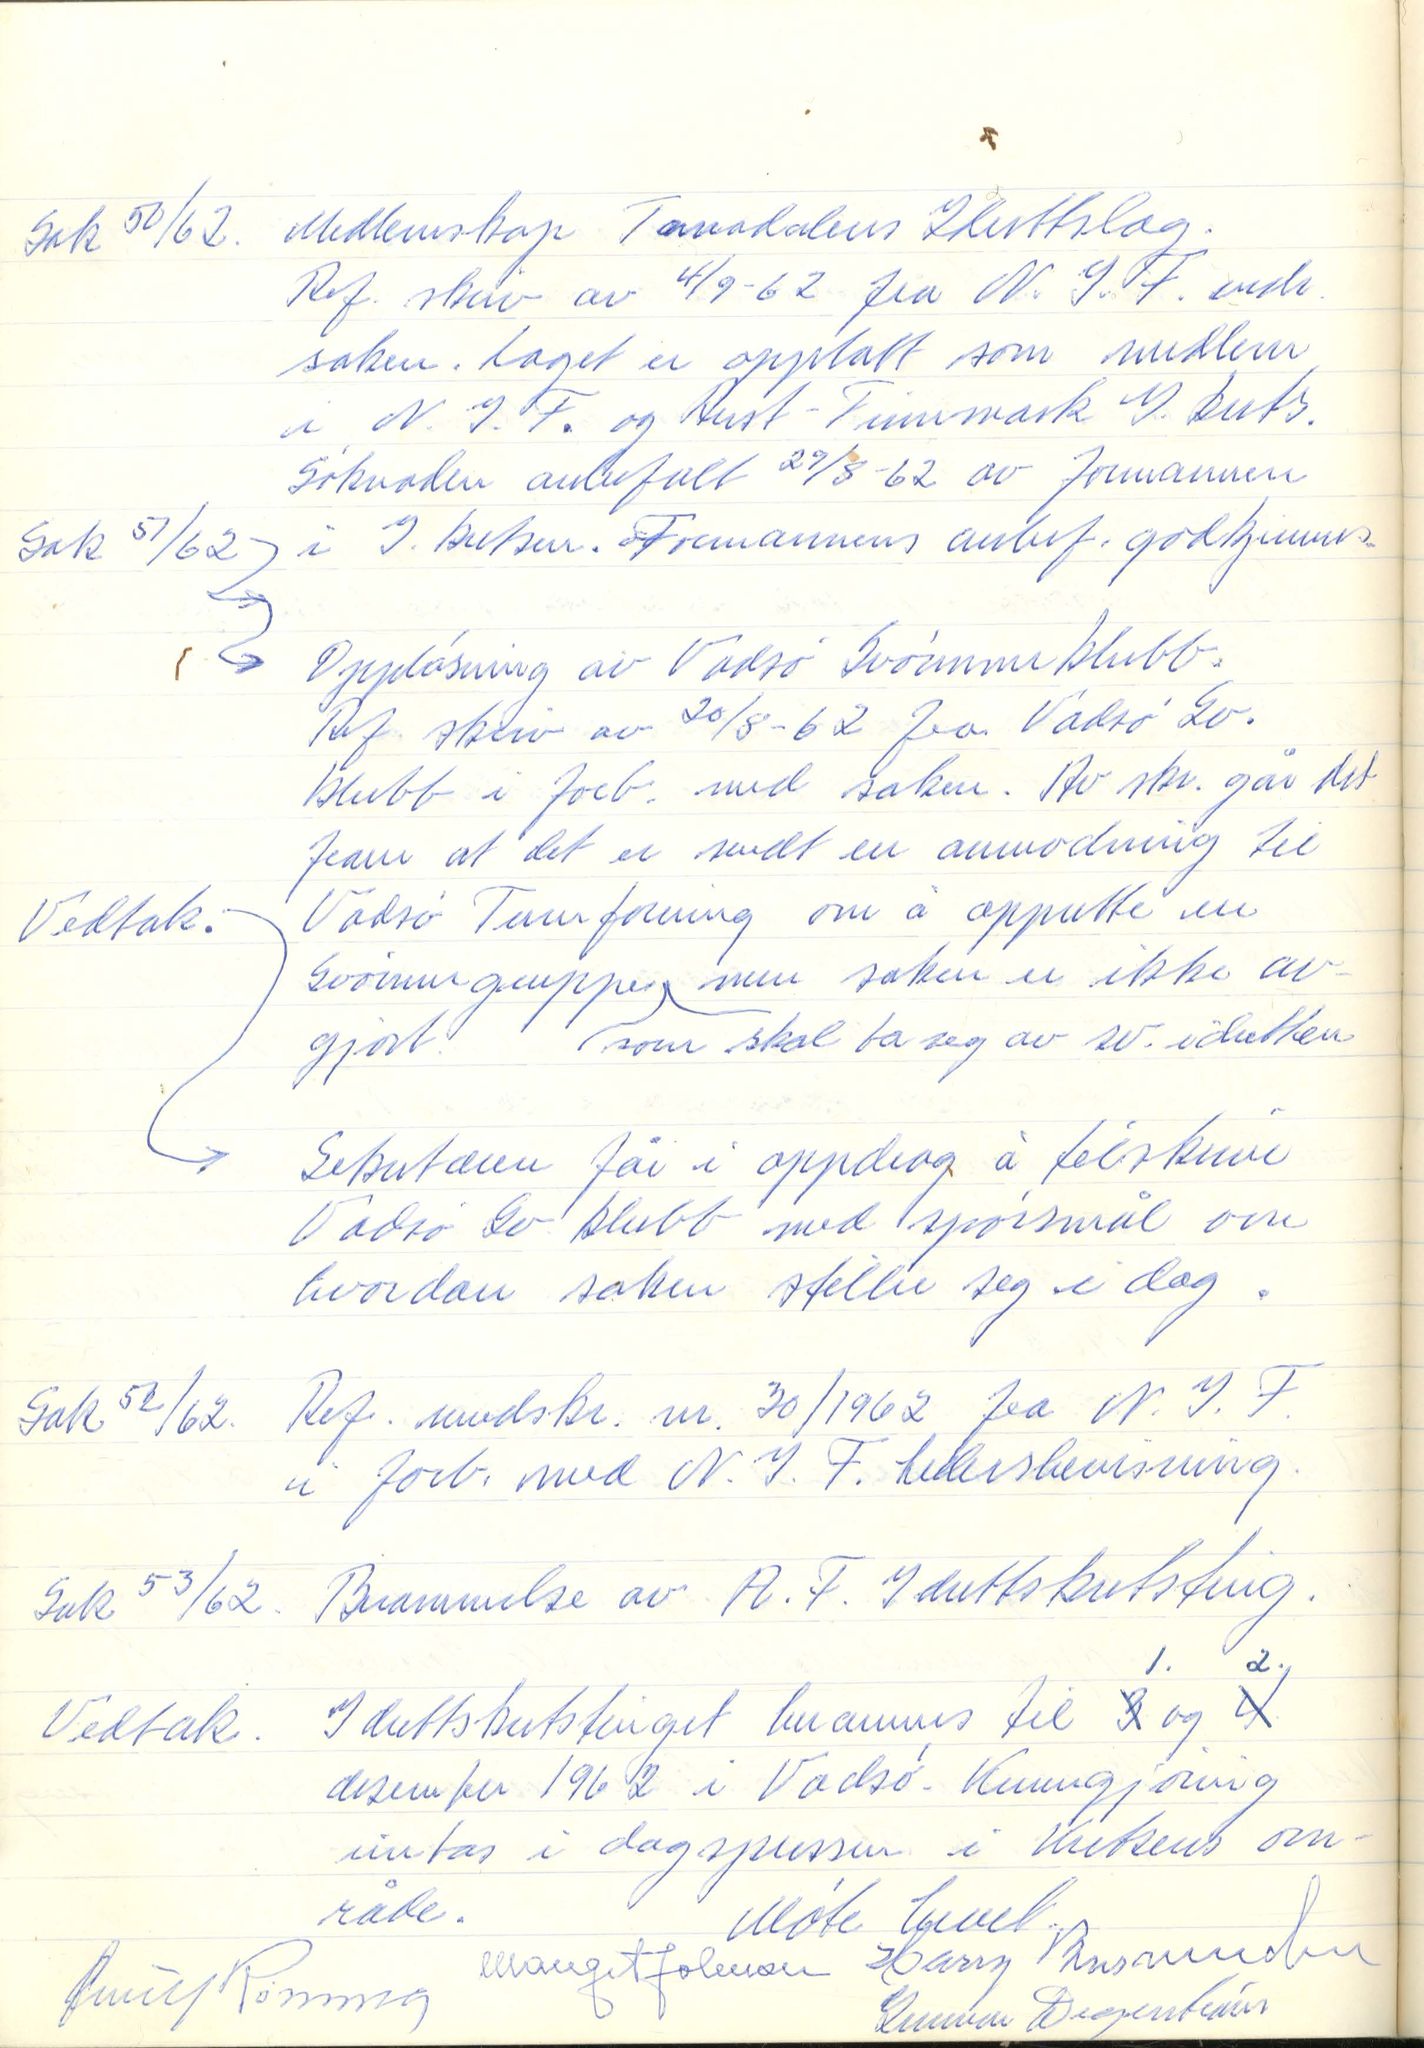 Sak 50/62. Medlemskap Tanadalens Idrettslag.
Ref. skriv av 4/9-62 fra N. I. F. vedr.
saken. Laget er opptatt som medlem
i N. I. F. og Aust-Finnmark I. krets.
Söknaden anbefalt 29/8-62 av formannen
Sak 51/62 i I. kretsen. Formannens anbef. godkjennes.
Opplösning av Vadsö Svömmeklubb.
Ref. skriv av 20/8-62 fra Vadsö Sv.
klubb i forb. med saken. Av skr. går det
fram at det er sendt en anmodning til
Vedtak: Vadsö Turnforening om å opprette en
Svömmegruppe, men saken er ikke av-
gjort. som skal ta seg av sv. idretten
Sekretæren får i oppdrag å tilskrive
Vadsö Sv klubb med spörsmål om
hvordan saken stiller seg i dag.
Sak 52/62. Ref. rundskr. nr. 30/1962 fra N. I. F.
i forb. med N. I. F. hedersbevisning.
Sak 53/62. Berammelse av A. F. Idrettskretsting.
1. 2.
Vedtak. Idrettskretstinget berammes til 3 og 4
desember 1962 i Vadsö. Kunngjöring
inntas i dagspressen i kretsens om-
råde. Möte hevet.
Margit Johnsen Harry Rasmussen
Arnulf Rönning
Gunnar